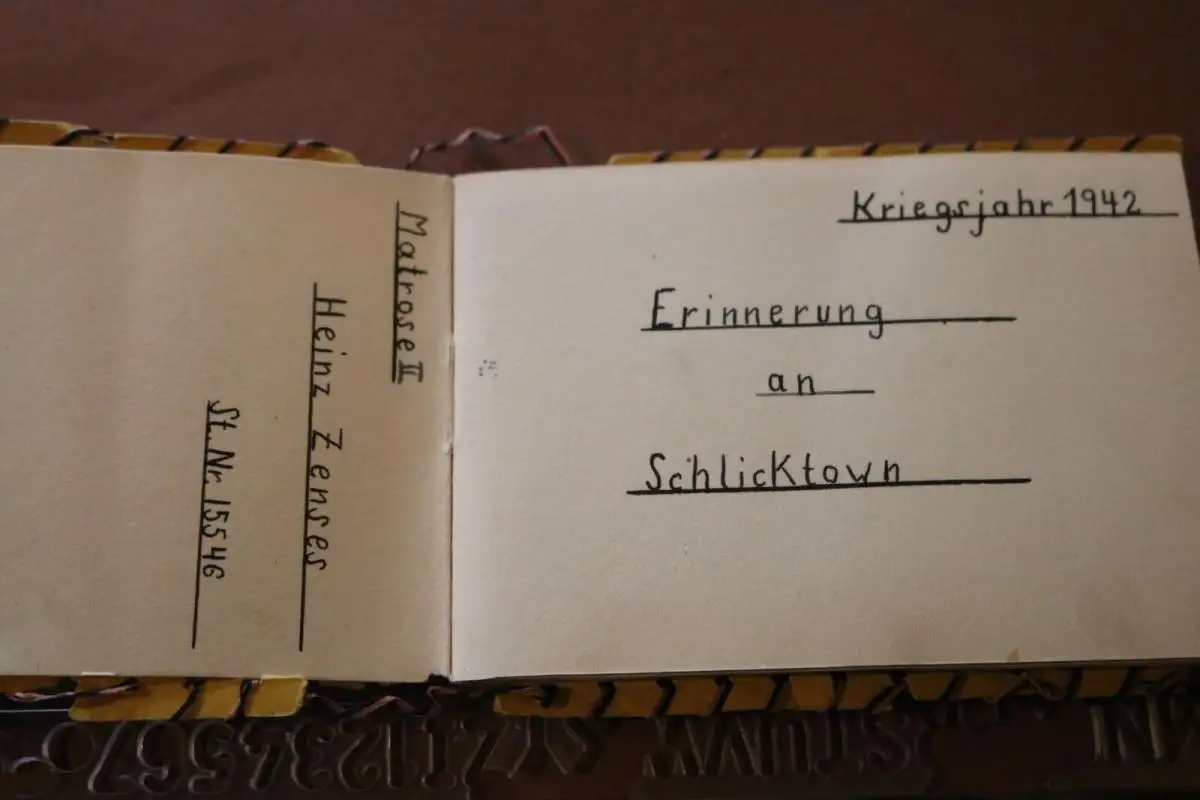 Matrose II
Heinz Zenses
St. Nr. 15546
Kriegsjahr 1942
Erinnerung
an
Schlicktown